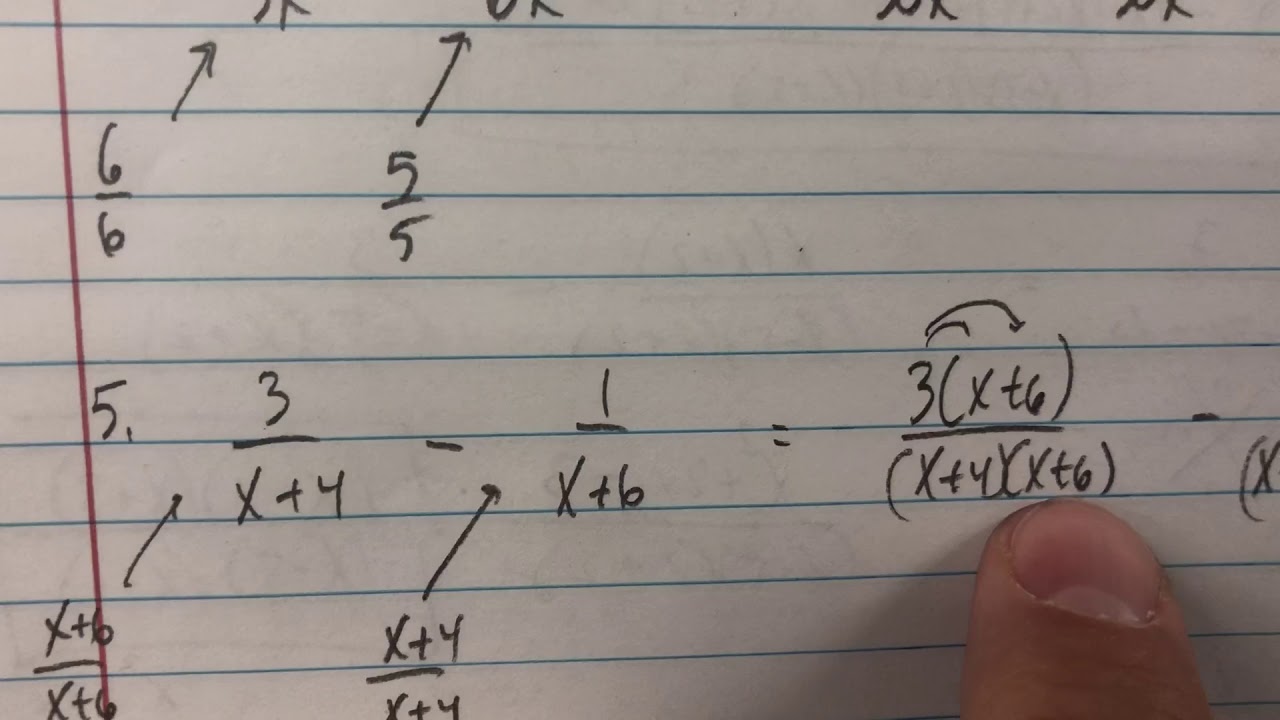 6/6 5/5
5. 3/(x+4) - 1/(x+6) = 3(x+6)/((x+4)(x+6)) - (x
x+6/x+6 x+4/x+4